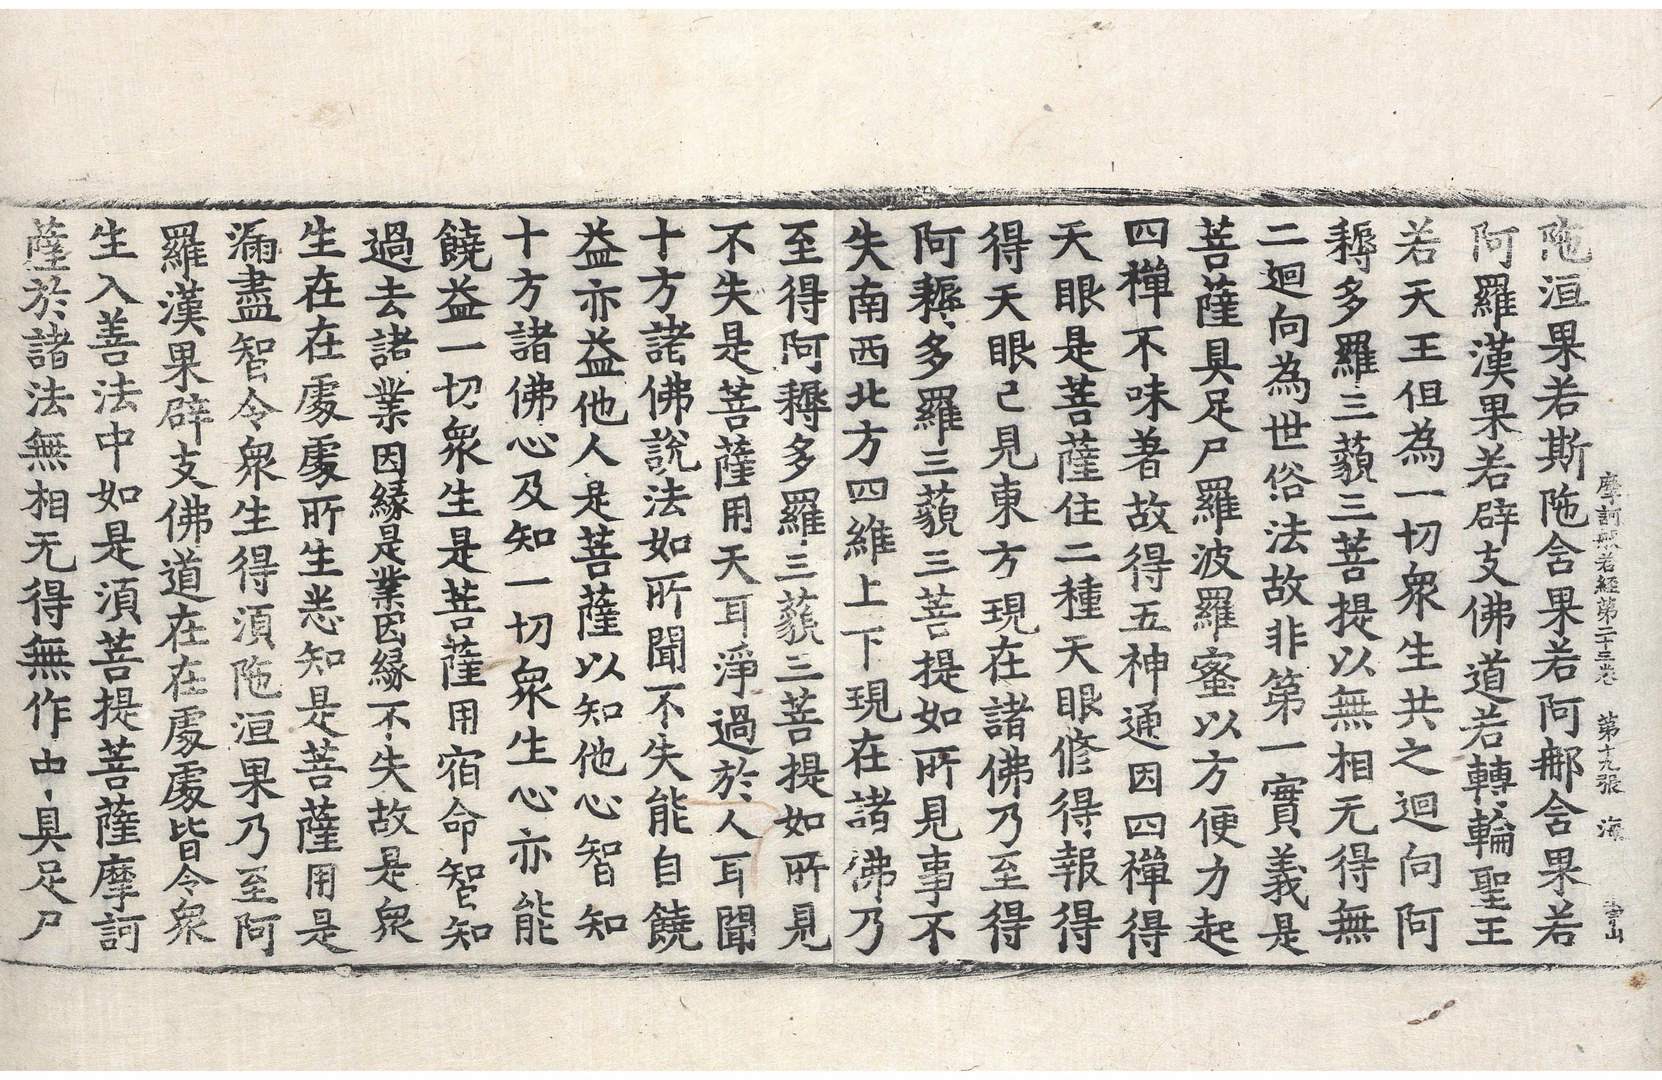 摩訶般若經第二十三卷 第十九張 海
陁洹果若斯陁含果若阿那含果若
阿羅漢果若辟支佛道若轉輪聖王
若天王但為一切衆生共之迴向阿
耨多羅三藐三菩提以無相无得無
二迴向為世俗法故非第一實義是
菩薩具足尸羅波羅蜜以方便力起
四禪不味著故得五神通因四禪得
天眼是菩薩住二種天眼修得報得
得天眼已見東方現在諸佛乃至得
阿耨多羅三藐三菩提如所見事不
失南西北方四維上下現在諸佛乃
至得阿耨多羅三藐三菩提如所見
不失是菩薩用天耳淨過於人耳聞
十方諸佛說法如所聞不失能自饒
益亦益他人是菩薩以知他心智知
十方諸佛心及知一切衆生心亦能
饒益一切衆生是菩薩用宿命智知
過去諸業因緣是業因緣不失故是衆
生在在處處所生悉知是菩薩用是
漏盡智令衆生得須陁洹果乃至阿
羅漢果辟支佛道在在處處皆令衆
生入善法中如是須菩提菩薩摩訶
薩於諸法無相无得無作中具足尸